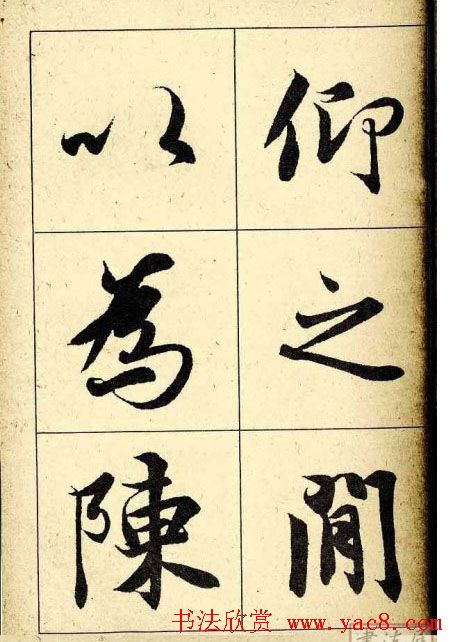 仰之間
以為陳
书法欣赏 www.yac8.com